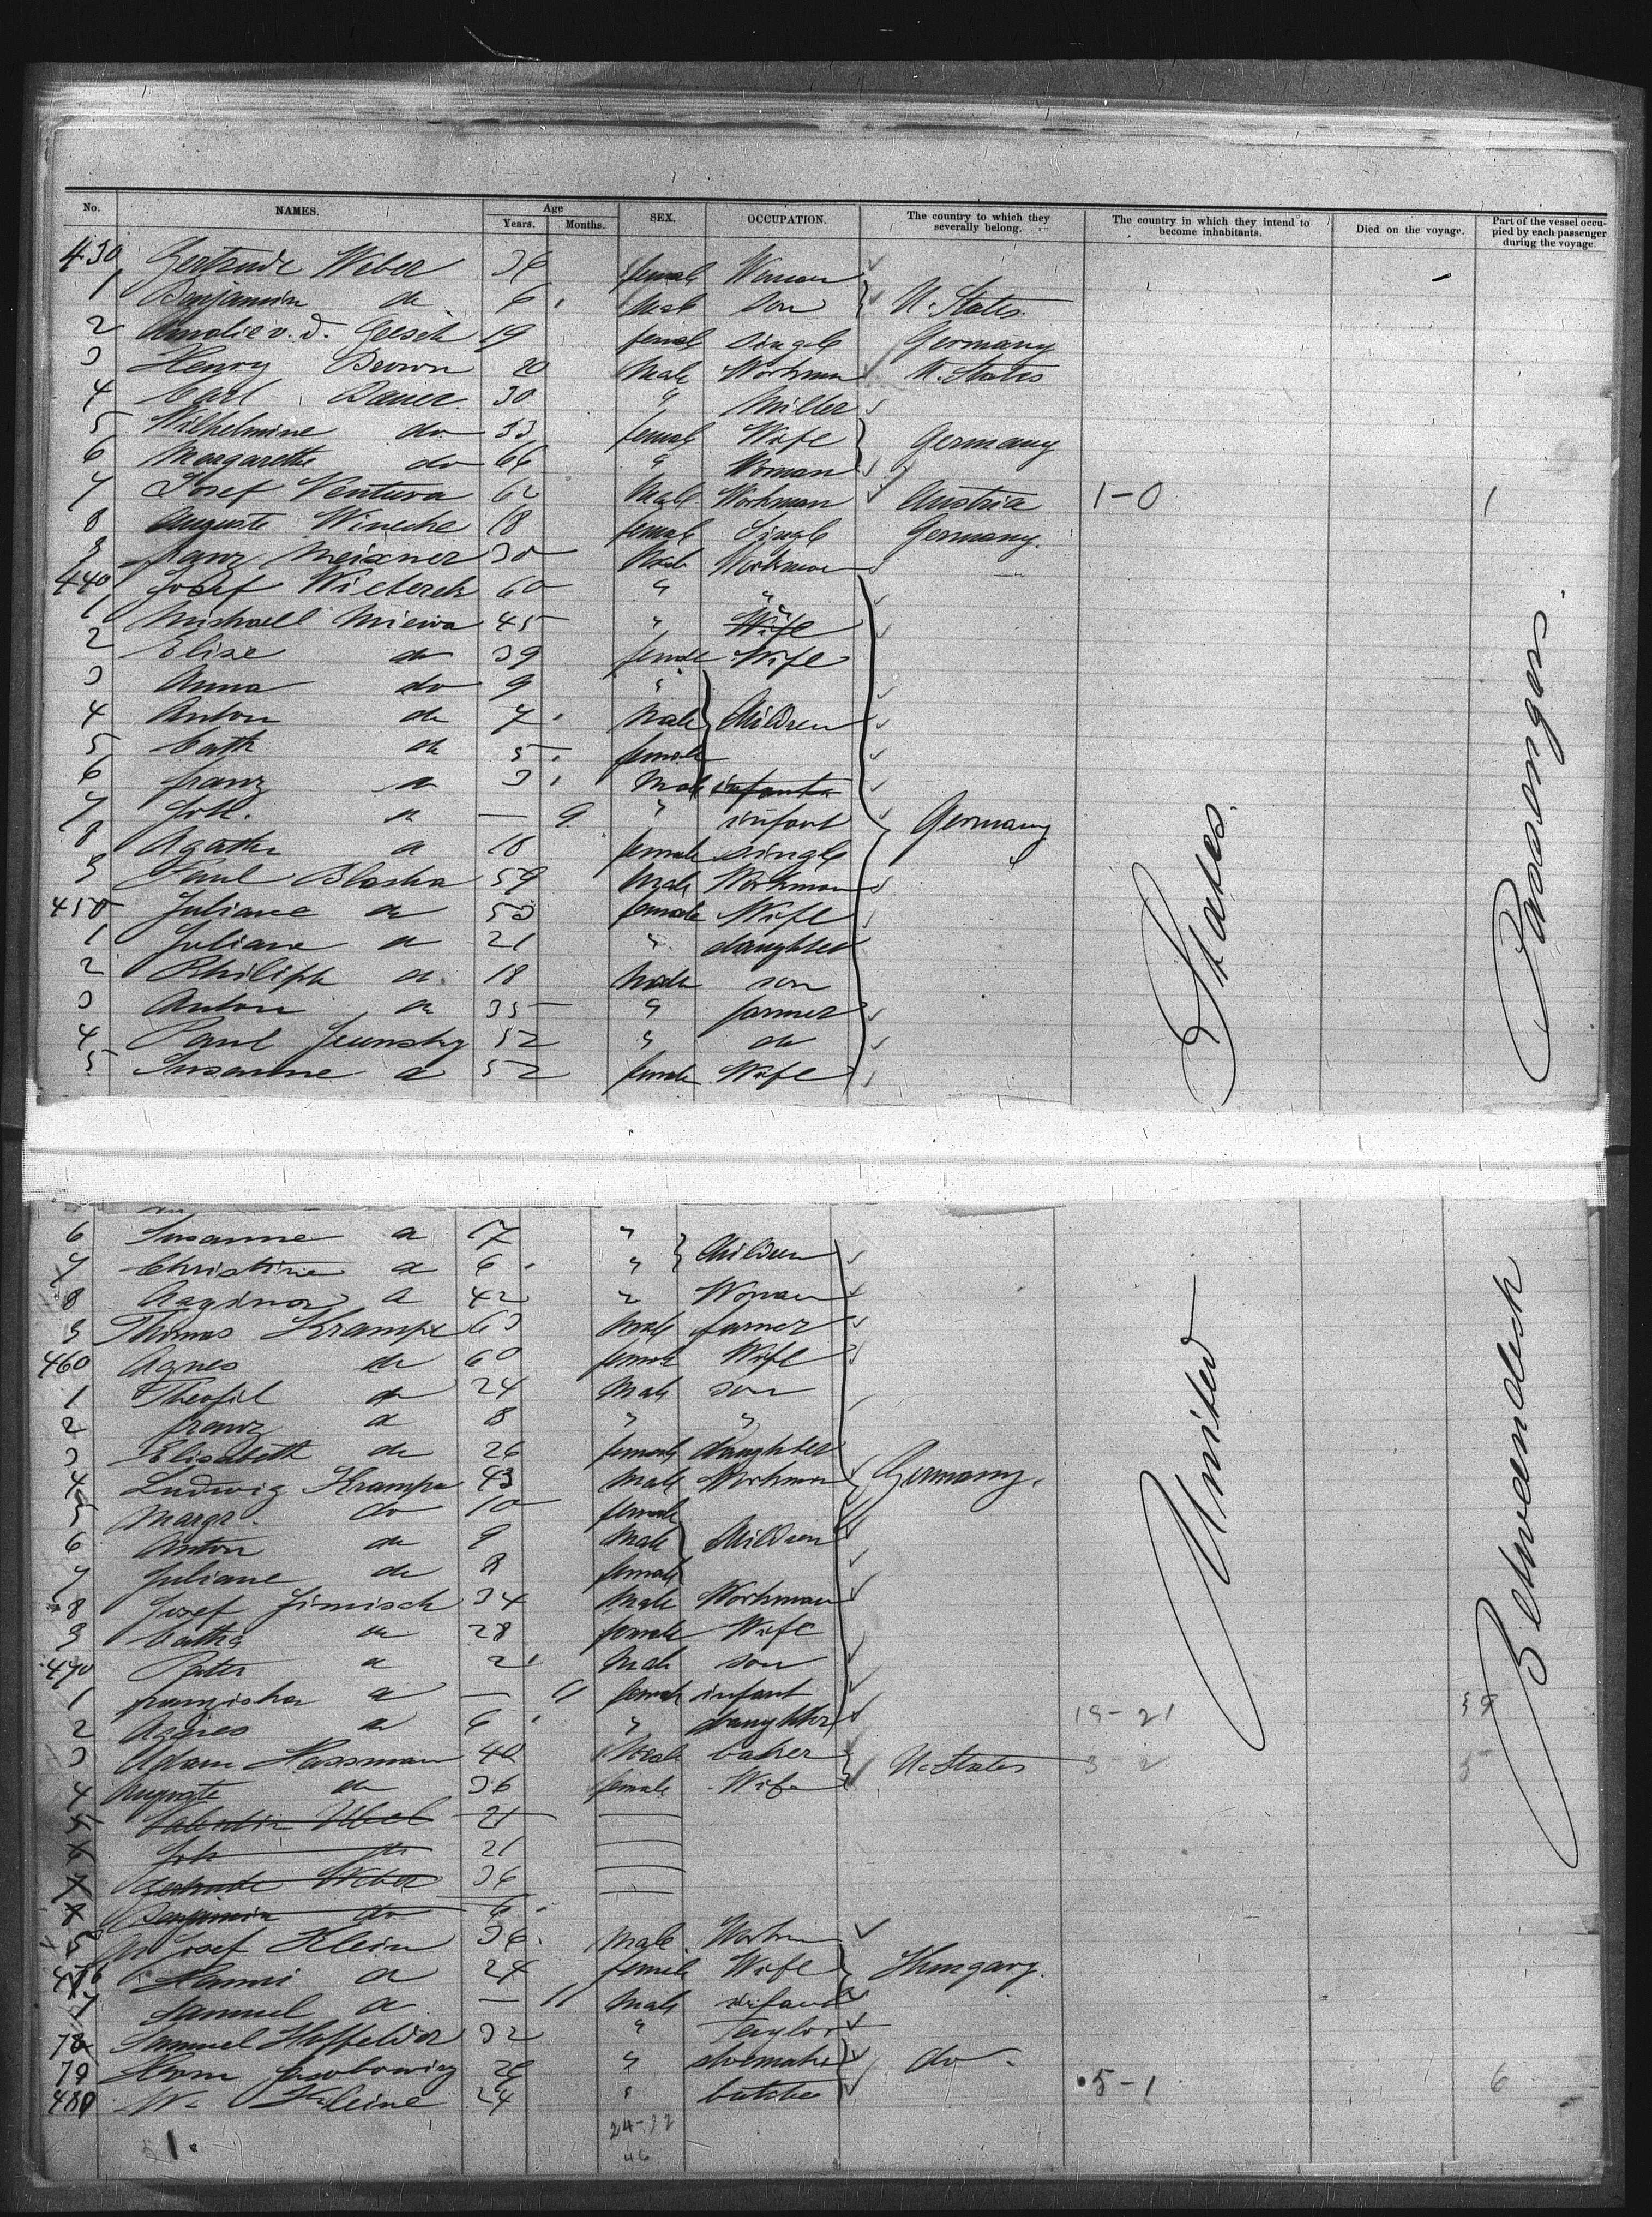 No. NAMES. Age Years. Months. SEX. OCCUPATION. The country to which they severally belong. The country in which they intend to become inhabitants. Died on the voyage. Part of the vessel occupied by each passenger during the voyage.
430 Gertrude Weber 36 female Woman
1 Benjamin do 6 Male Son U. States.
2 Amalie v. d. Geesch 19 female Single Germany
3 Henry Brown 20 Male Workman U. States
4 Carl Bauer 30 " Miller
5 Wilhelmine do 33 female Wife Germany
6 Margarethe do 66 " Woman
7 Josef Ventura 62 Male Workman Austria 1-0 1
8 Auguste Winecke 18 female Single Germany.
9 Franz Meixner 30 Male Workman
440 Josef Wieterek 60 " "
1 Michael Miewa 45 " Wife
2 Elise do 39 female Wife
3 Anna do 9 "
4 Anton do 7 Male Children
5 Cath do 5 female
6 Franz do 3 Male infant
7 Joh. do — 9 " infant Germany
8 Agathe do 18 female single
9 Paul Blaska 59 Male Workman
450 Juliane do 53 female Wife
1 Juliane do 21 " daughter
2 Philipp do 18 Male son
3 Anton do 35 " farmer
4 Paul 52 " do
5 Susanne do 52 female Wife
6 Susanne do 17 "
7 Christine do 6 " Children
8 do 42 " Woman
9 Thomas Krampe 63 Male farmer
460 Agnes do 60 female Wife
1 Theofil do 24 Male son
2 Franz do 8 " "
3 Elisabeth do 26 female daughter
4 Ludwig Krampe 43 Male Workman Germany.
5 Margr. do 10 female
6 Anton do 9 Male Children
7 Juliane do 8 female
8 Josef Jimisch 34 Male Workman
9 Catha do 28 female Wife
470 Peter do 2 Male son
1 Franziska do — 11 female infant 19-21
2 Agnes do 6 " daughter
3 Adam Hassman 40 Male baker U. States 3 2 5
4 Auguste do 36 female Wife
5 Valentin Ubel 21
6 Joh do 21
7 Gertrude Weber 36
8 Benjamin do 6
Josef Klein 36 Male Workm
476 Hanni do 24 female Wife Hungary.
7 Samuel do — 11 Male infant
78 Samuel 32 " Taylor
79 Herm Jacobowicz 28 " shoemaker do
480 Wm Kleine 24 " butcher 5-1 6
24-22
46
United States.
Betweendeck Passengers.